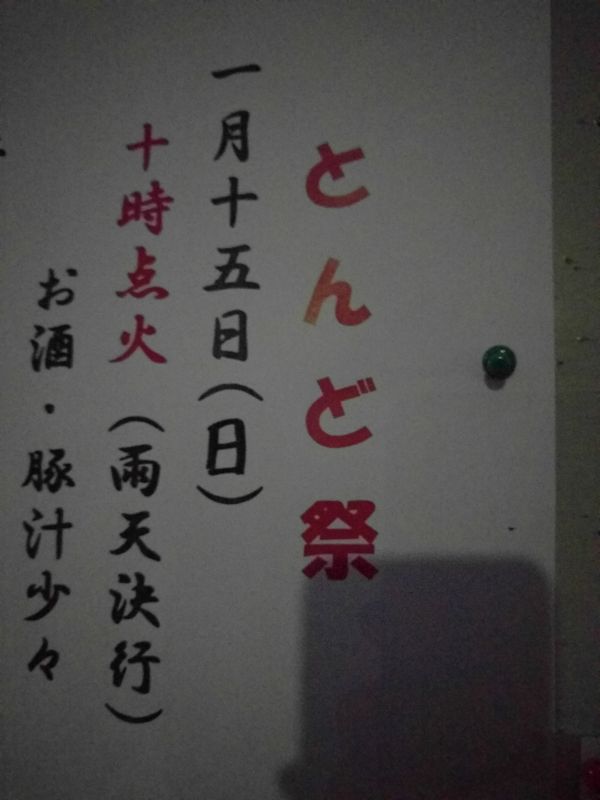 とんど祭
一月十五日(日)
十時点火(雨天決行)
お酒・豚汁少々